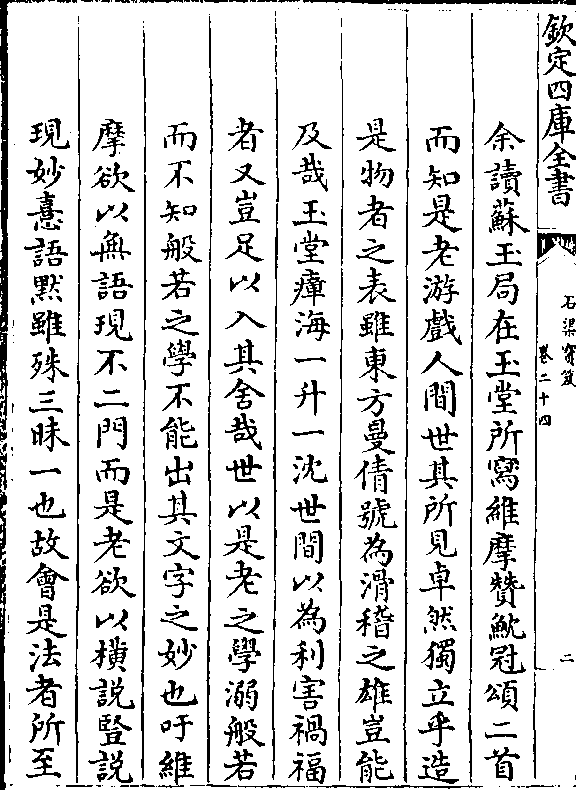 欽定四庫全書
石渠寶笈
卷二十四
二
余讀蘇玉局在玉堂所寫維摩贊魷冠頌二首
而知是老游戲人間世其所見卓然獨立乎造
是物者之表雖東方曼倩號為滑稽之雄豈能
及哉玉堂瘴海一升一沈世間以為利害禍福
者又豈足以入其舍哉世以是老之學溺般若
而不知般若之學不能出其文字之妙也吁維
摩欲以無語現不二門而是老欲以横說豎說
現妙憙語默雖殊三昧一也故會是法者所至